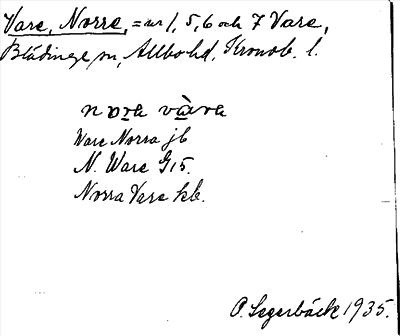 Vare, Norre, = nr 1, 5, 6 och 7 Vare,
Blädinge sn, Allbo hd, Kronob. l.
nora vàra
Ware Norra jb
N. Ware G15.
Norra Vare kb.
P. Segerbäck 1935.